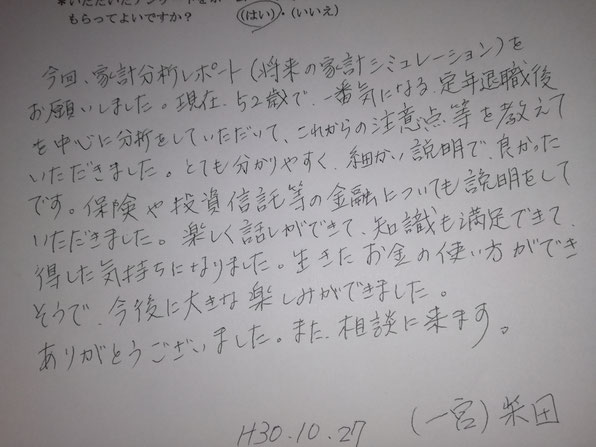 もらってよいですか？ (はい)・(いいえ)
今回、家計分析レポート(将来の家計シミュレーション)を
お願いしました。現在、52歳で、一番気になる、定年退職後
を中心に分析をしていただいて、これからの注意点等を教えて
いただきました。とても分かりやすく、細かい説明で、良かった
です。保険や投資信託等の金融についても説明をして
いただきました。楽しく話しができて、知識も満足できて、
得した気持ちになりました。生きたお金の使い方ができ
そうで、今後に大きな楽しみができました。
ありがとうございました。また、相談に来ます。
H30.10.27 (一宮) 柴田